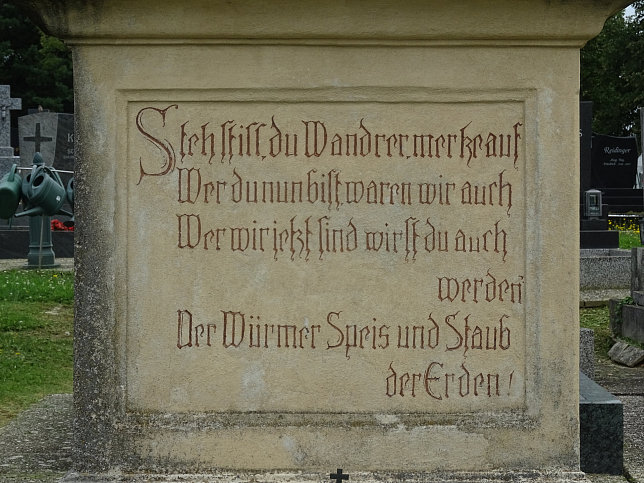 Steh still, du Wandrer, merke auf
Wer du nun bist, waren wir auch
Wer wir jetzt sind wirst du auch
werden
Der Würmer Speis und Staub
der Erden!
Reidinger